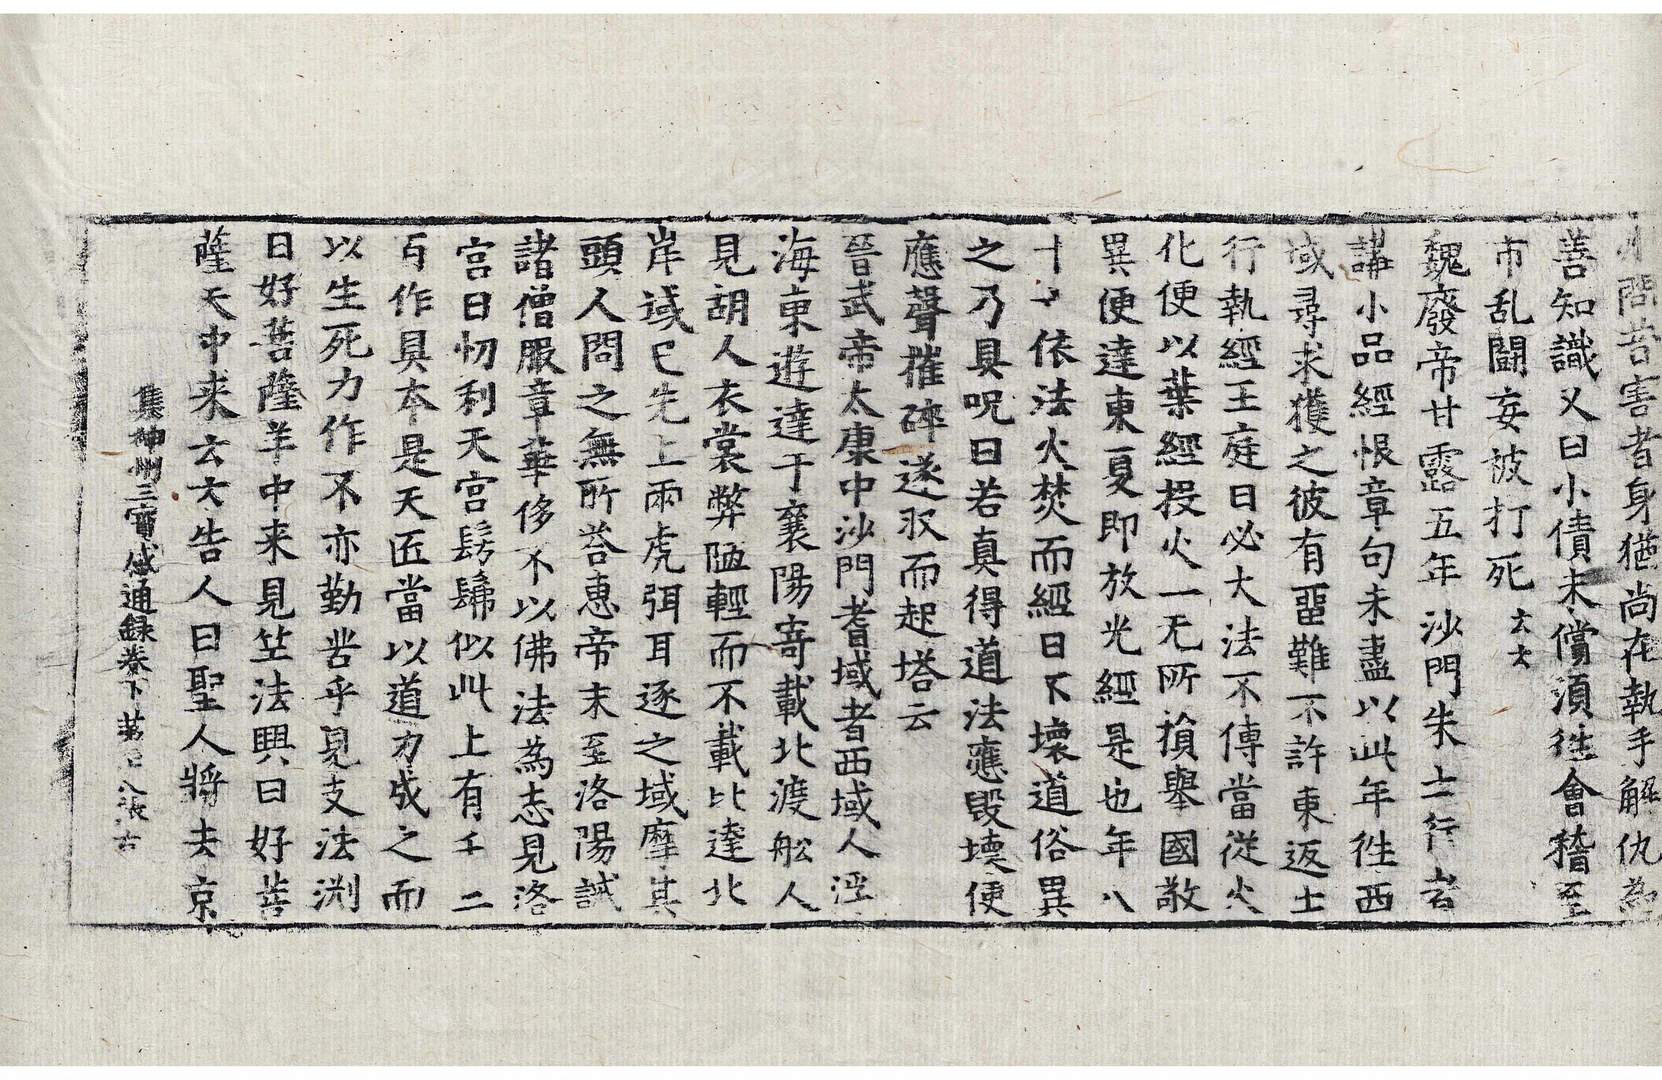 問昔害者身猶尚在執手解仇為
善知識又曰小債未償湏徃會稽至
市乱鬪妄被打死 云云
魏廢帝甘露五年沙門朱士行者
講小品經恨章句未盡以此年徃西
域尋求獲之彼有留難不許東返士
行執經王庭日必大法不傳當從火
化便以葉經投火一无所損舉國敬
異便達東夏即放光經是也年八
十 依法火焚而經日不壞道俗異
之乃具呪曰若真得道法應毀壞便
應聲摧碎遂収而起塔云
晉武帝太康中沙門耆域者西域人泛
海東遊達于襄陽寄載北渡舩人
見胡人衣裳弊陋輕而不載比達北
岸域已先上兩虎弭耳逐之域摩其
頭人問之無所荅惠帝末至洛陽誡
諸僧服章華侈不以佛法為志見洛
宮曰忉利天宮髣髴似此上有千二
百作具本是天匠當以道力成之而
以生死力作不亦勤苦乎見支法渊
曰好菩薩羊中来見竺法興曰好菩
薩天中来云云告人曰聖人將去京
集神州三寳感通録卷下 第 八張 古